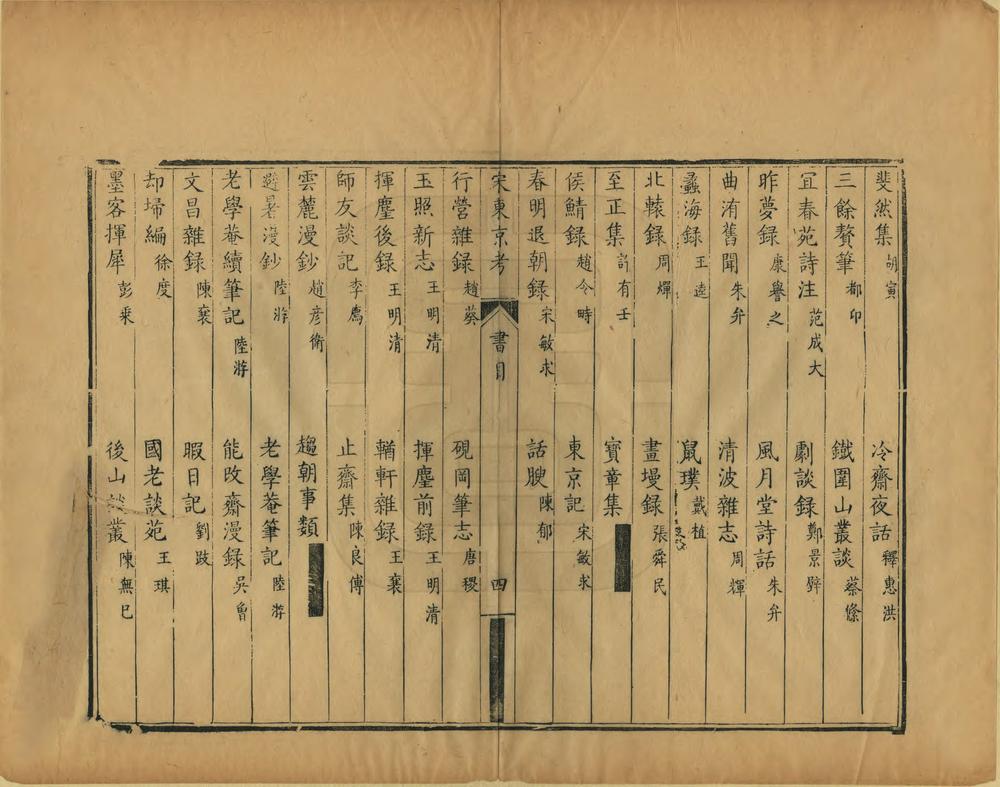 斐然集胡寅 冷齋夜話釋惠洪
三餘贅筆都卬 鐵圍山叢談蔡絛
宜春苑詩注范成大 劇談錄鄭景璧
昨夢録康譽之 風月堂詩話朱弁
曲洧舊聞朱弁 清波雜志周輝
蠡海録王逵 鼠璞戴植
北轅録周煇 畫墁録張舜民
至正集許有壬 寶章集
侯鯖録趙令時 東京記宋敏求
春明退朝録宋敏求 話腴陳郁
宋東京考 書目 四
行營雜録趙葵 硯岡筆志唐稷
玉照新志王明清 揮麈前録王明清
揮麈後録王明清 輶軒雜録王襄
師友談記李廌 止齋集陳良傅
雲麓漫鈔趙彦衛 趨朝事類
避暑漫鈔陸游 老學菴筆記陸游
老學菴續筆記陸游 能改齋漫録吳曾
文昌雜録陳襄 暇日記劉跂
却埽編徐度 國老談苑王琪
墨客揮犀彭乘 後山談叢陳無已